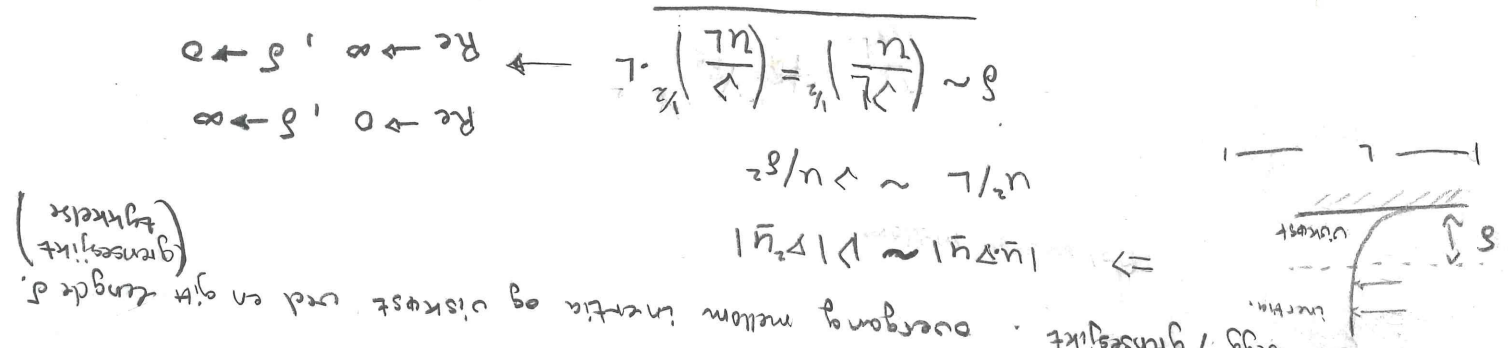 vegg / grensesjikt . overgang mellom inertia og viskøst ved en gitt lengde δ.
(grensesjikt tykkelse)
inertia.
δ
viskøst
L
=> |ū·∇ū| ~ ν|∇²ū|
u²/L ~ νu/δ²
δ ~ (νL/U)^½ = (ν/UL)^½ · L
Re → 0 , δ → ∞
Re → ∞ , δ → 0